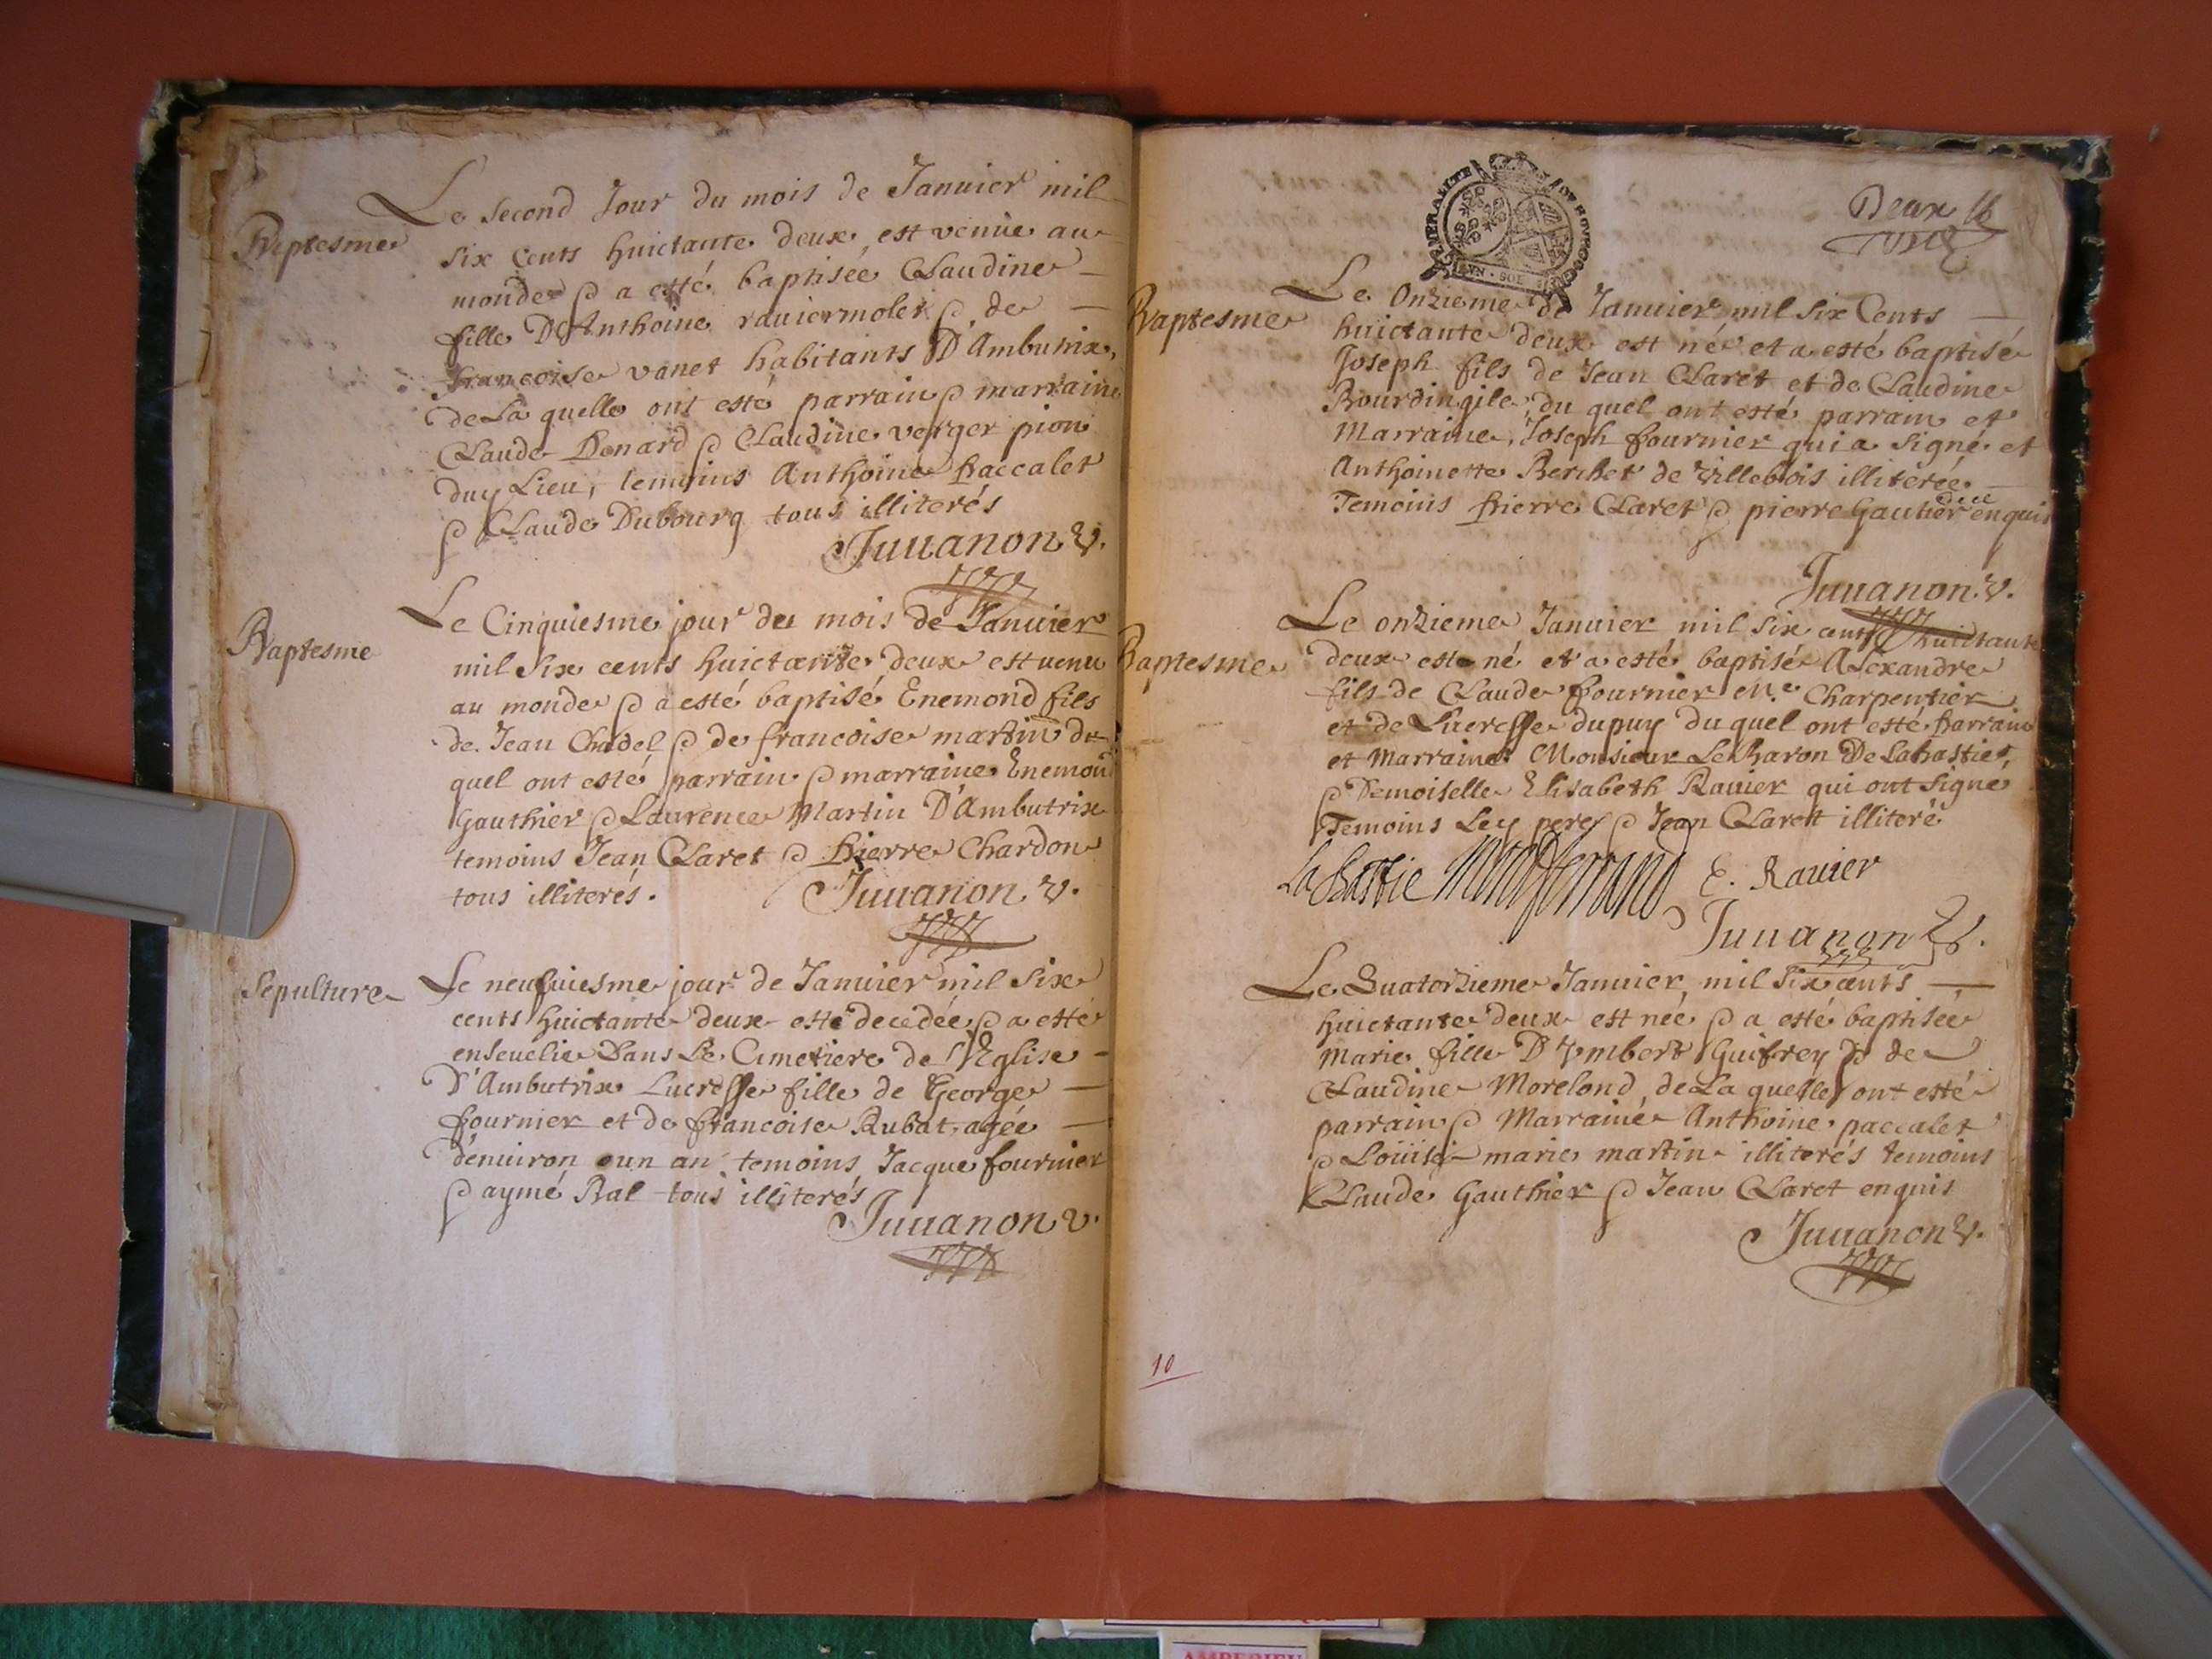 Le second Jour du mois de Januier mil
Baptesme
six Cents huictante deux, est venüe au
monde & a esté baptisée Claudine
fille D'Anthoine rauiermolet & de
francoise vanet habitants D'Ambutrix,
deLa quelle ont esté parrain & marraine
Claude Benard & Claudine verger pion
duy Lieu, temoins Anthoine Paccalet
& Claude Dubourg tous illiterés
Juuanon v.
Le Cinquiesme jour du mois de Januier
Baptesme
mil Six cents huictante deux est uenu
au monde & a esté baptisé Enemond fils
de Jean Chadel & de francoise martin du
quel ont esté parrain & marraine Enemond
Gauthier & Laurence Martin D'Ambutrix
temoins Jean Claret & Pierre Chardon
tous illiterés.
Juuanon v.
Sepulture
Le neufuiesme jour de Januier mil Six
cents huictante deux est decedée & a esté
enseuelie Dans Le Cimetiere de l'Eglise
D'Ambutrix Lucresse fille de George
fournier et de francoise Rubat, agée
d'enuiron un an temoins Jacque fournier
& aymé Bal tous illiterés
Juuanon v.
Deux
Le Onzieme de Januier mil Six Cents
Baptesme
huictante deux est né et a esté baptisé
Joseph fils de Jean Claret et de Claudine
Bourdingile, du quel ont esté parrain et
Marraine, Joseph fournier qui a signé et
Anthoinette Berchet de Villebois illiterée
Temoins Pierre Claret & pierre Gautier enquis
Juuanon v.
Le onzieme Januier mil Six cents huictante
Baptesme
deux est né et a esté baptisé Alexandre
fils de Claude fournier M.e Charpentier
et de Lucresse dupuy du quel ont esté Parrain
et Marraine Monsieur Le Baron De Labastie,
& Demoiselle Elisabeth Rauier qui ont signé
Temoins Ley pere & Jean Claret illiteré
La Bastie Montferrand E. Rauier
Juuanon v.
Le Quatorzieme Januier mil Six cents
huictante deux est née & a esté baptisée
Marie fille D'Ymbert Guifrey & de
Claudine Morelond, deLa quelle ont esté
parrain & Marraine Anthoine paccalet
& Loüise marie martin illiterés temoins
Claude Gauthier & Jean Claret enquis
Juuanon v.
10